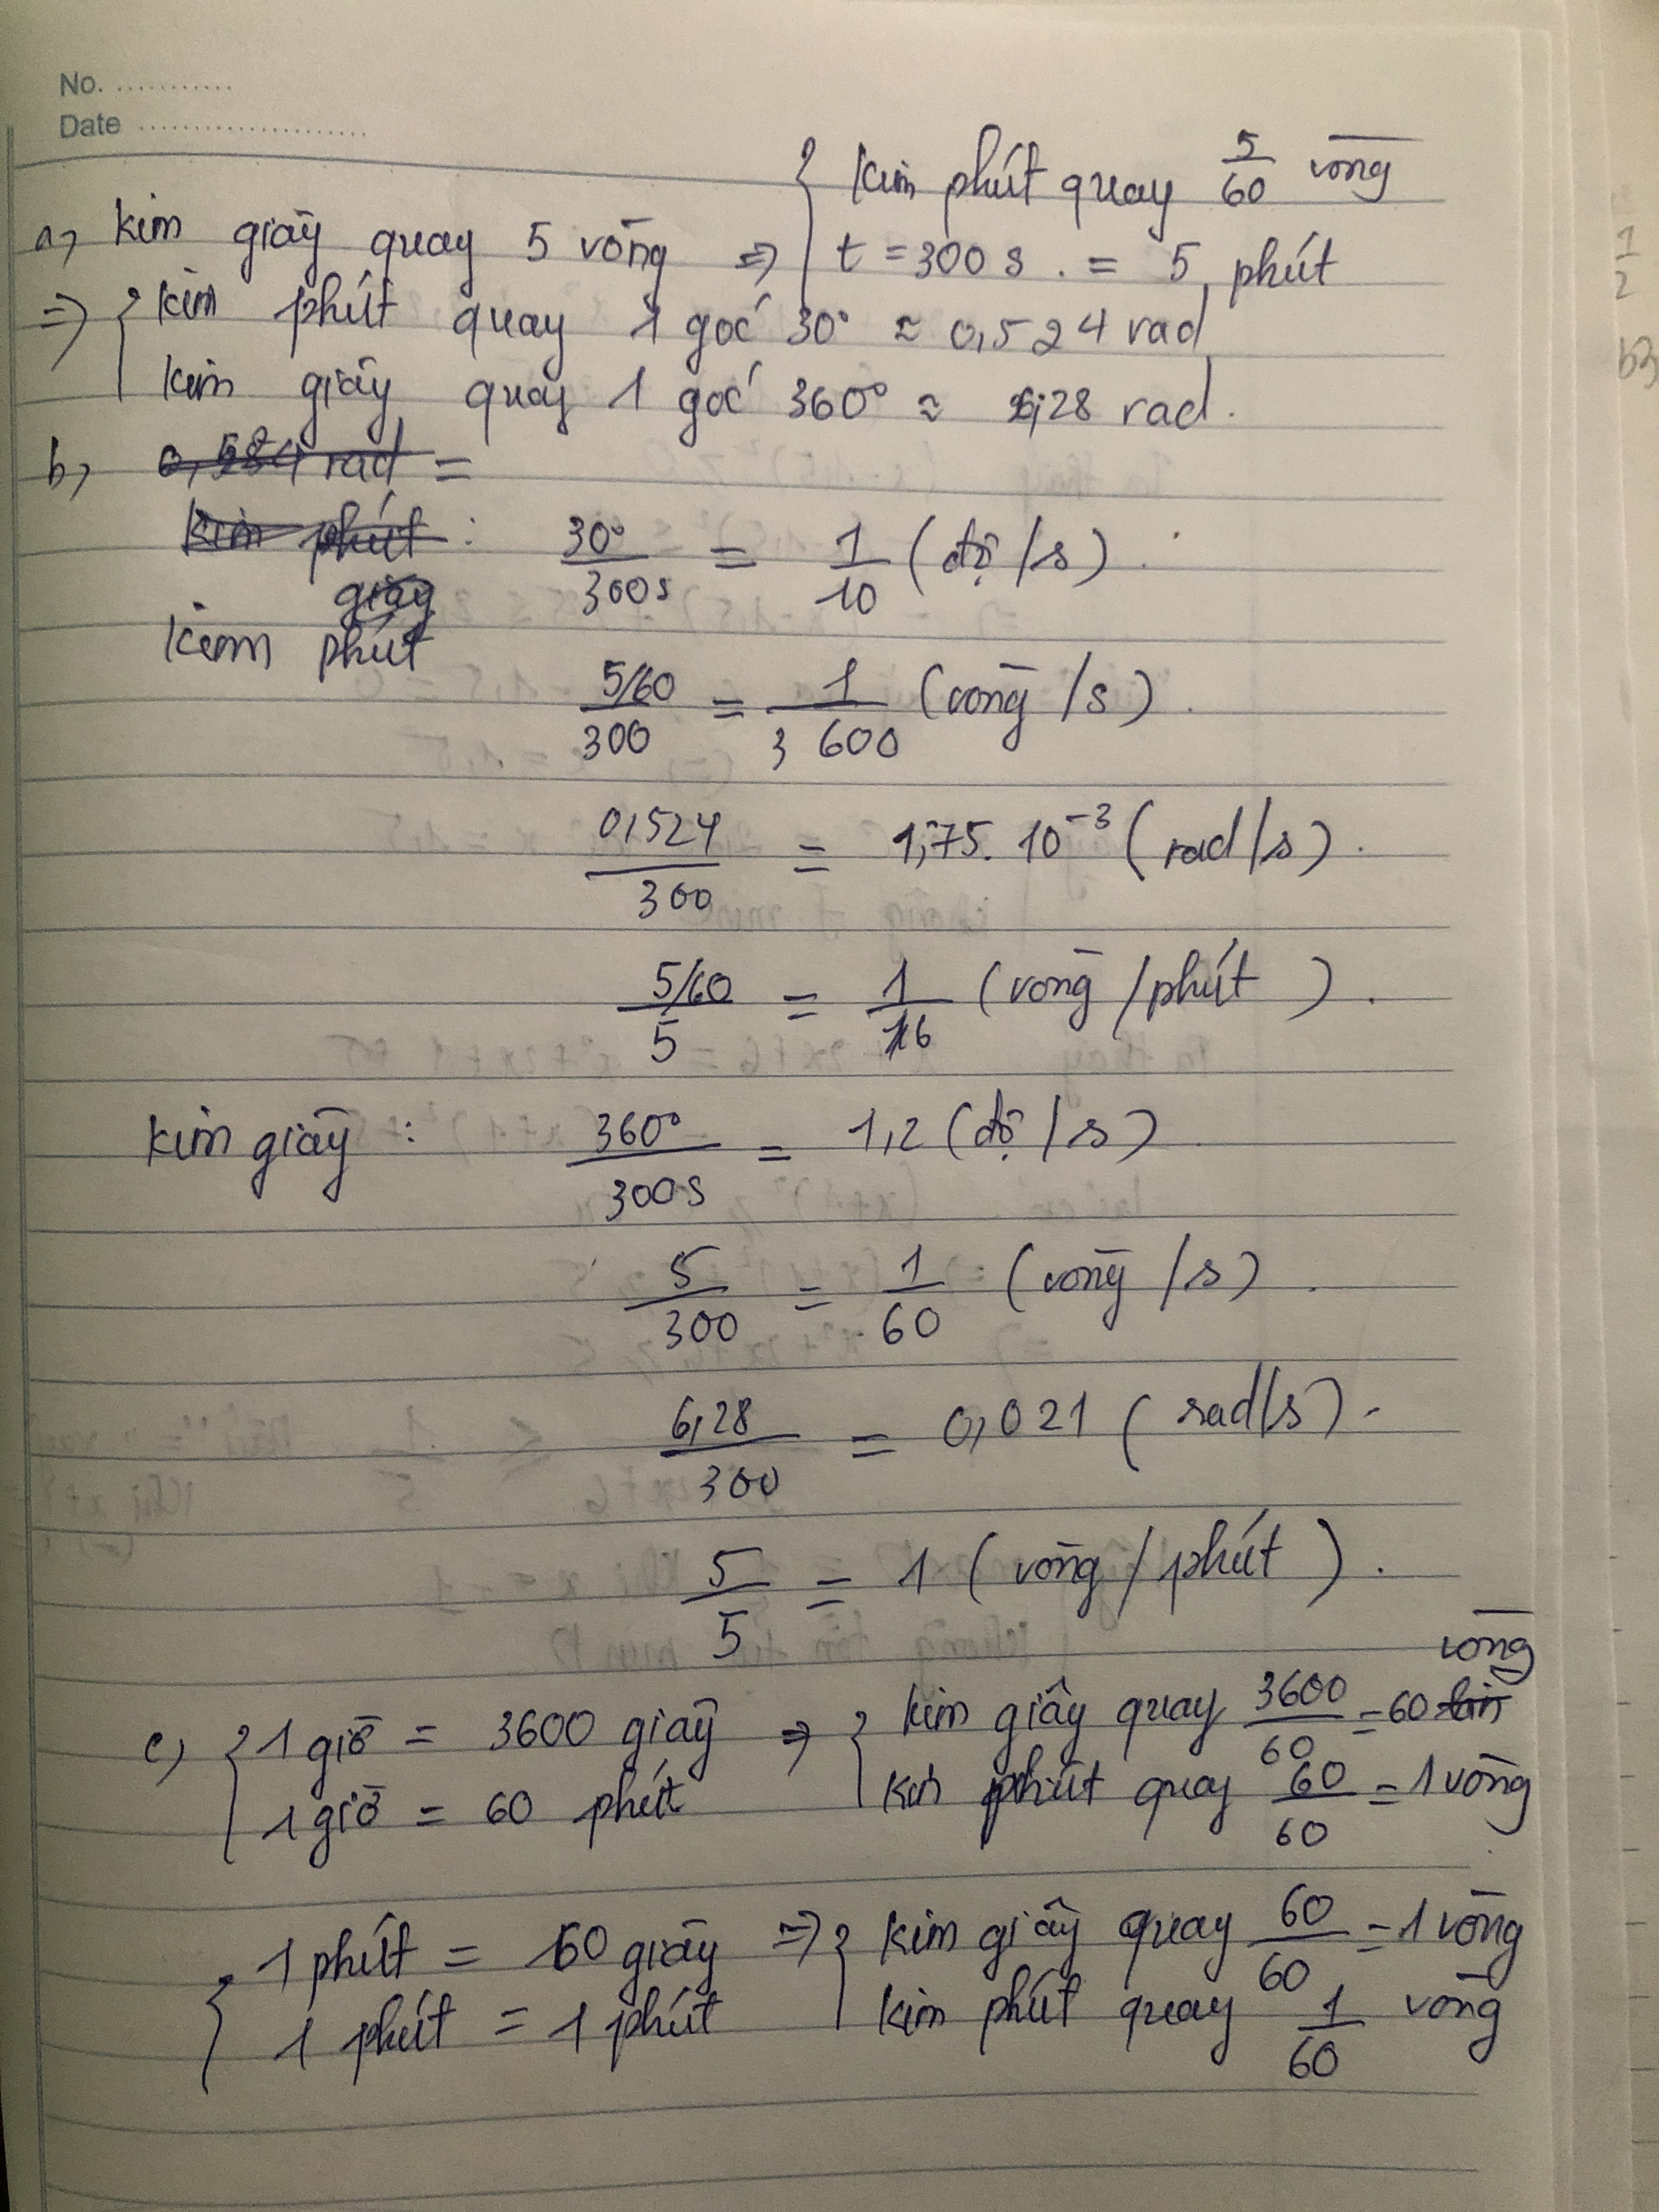 No. ...........
Date .....................
a, kim giây quay 5 vòng => { kim phút quay 5/60 vòng
t = 300 s . = 5 phút
=> { kim phút quay 1 góc 30° ≈ 0,524 rad
kim giây quay 1 góc 360° ≈ 6,28 rad.
b, 0,524 rad =
kim phút : 30°/300s = 1/10 (độ/s).
giây
kim phút
5/60/300 = 1/3600 (vòng/s).
0,524/300 = 1,75. 10⁻³ (rad/s).
5/60/5 = 1/16 (vòng/phút).
kim giây : 360°/300s = 1,2 (độ/s)
5/300 = 1/60 (vòng/s).
6,28/300 = 0,021 (rad/s).
5/5 = 1 (vòng/phút).
c, { 1 giờ = 3600 giây => { kim giây quay 3600/60 = 60 lần vòng
1 giờ = 60 phút kim phút quay 60/60 = 1 vòng
{ 1 phút = 60 giây => { kim giây quay 60/60 = 1 vòng
1 phút = 1 phút kim phút quay 1/60 vòng
1/2
b3